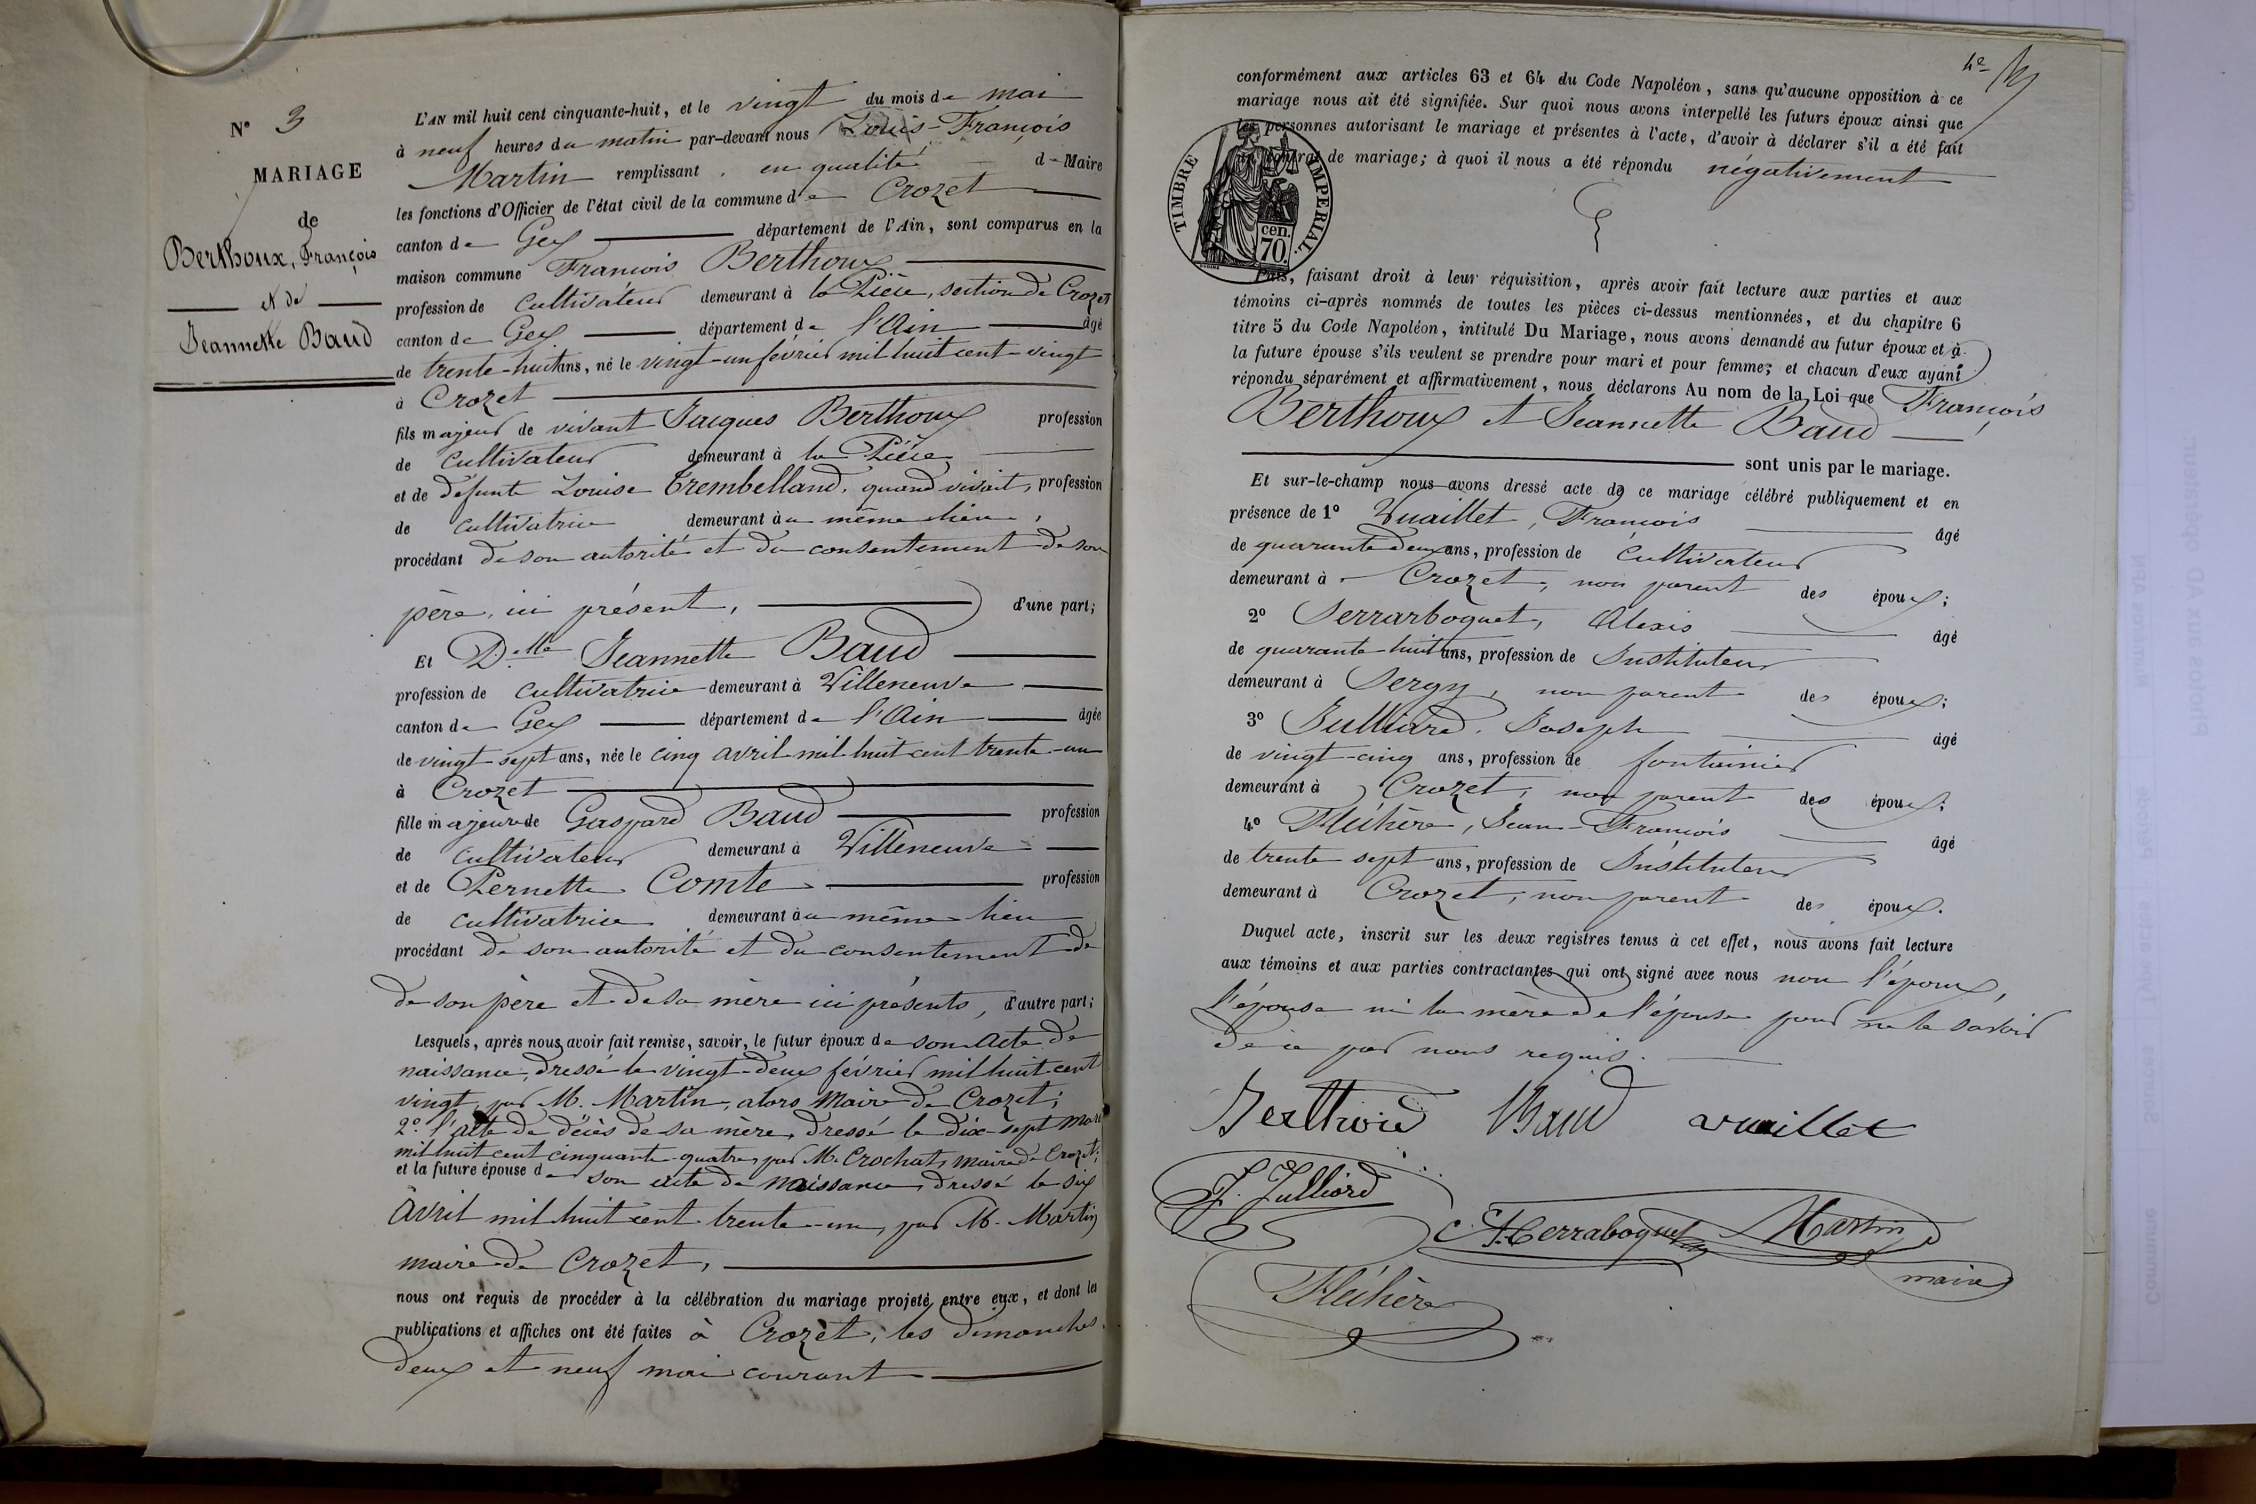 N° 3
MARIAGE
de
Berthoux, François
et de
Jeannette Baud
L'AN mil huit cent cinquante-huit, et le vingt du mois de mai
à neuf heures du matin par-devant nous Louis-François
Martin remplissant en qualité de Maire
les fonctions d'Officier de l'état civil de la commune de Crozet
canton de Gex département de l'Ain, sont comparus en la
maison commune François Berthoux
profession de cultivateur demeurant à la Pièce, section de Crozet
canton de Gex département de l'Ain âgé
de trente-huit ans, né le vingt-un février mil huit cent vingt
à Crozet
fils majeur de vivant Jacques Berthoux profession
de cultivateur demeurant à la Pièce
et de défunte Louise Trembelland, quand vivait, profession
de cultivatrice demeurant au même lieu,
procédant de son autorité et du consentement de son
père, ici présent, d'une part;
Et Delle Jeannette Baud
profession de cultivatrice demeurant à Villeneuve
canton de Gex département de l'Ain âgée
de vingt-sept ans, née le cinq avril mil huit cent trente-un
à Crozet
fille majeure de Gaspard Baud profession
de cultivateur demeurant à Villeneuve
et de Pernette Comte profession
de cultivatrice demeurant au même lieu
procédant de son autorité et du consentement de
de son père et de sa mère ici présents, d'autre part;
Lesquels, après nous avoir fait remise, savoir, le futur époux de son acte de
naissance, dressé le vingt-deux février mil huit cent
vingt, par M. Martin, alors Maire de Crozet;
2° l'acte de décès de sa mère, dressé le dix-sept mars
mil huit cent cinquante-quatre, par M. Crochat, maire de Crozet;
et la future épouse de son acte de naissance, dressé le six
avril mil huit cent trente-un, par M. Martin
maire de Crozet,
nous ont requis de procéder à la célébration du mariage projeté entre eux, et dont les
publications et affiches ont été faites à Crozet, les dimanches
deux et neuf mai courant
4e
conformément aux articles 63 et 64 du Code Napoléon, sans qu'aucune opposition à ce
mariage nous ait été signifiée. Sur quoi nous avons interpellé les futurs époux ainsi que
les personnes autorisant le mariage et présentes à l'acte, d'avoir à déclarer s'il a été fait
un contrat de mariage; à quoi il nous a été répondu négativement
TIMBRE IMPERIAL.
cen.
70.
Puis, faisant droit à leur réquisition, après avoir fait lecture aux parties et aux
témoins ci-après nommés de toutes les pièces ci-dessus mentionnées, et du chapitre 6
titre 5 du Code Napoléon, intitulé Du Mariage, nous avons demandé au futur époux et à
la future épouse s'ils veulent se prendre pour mari et pour femme; et chacun d'eux ayant
répondu séparément et affirmativement, nous déclarons Au nom de la Loi que François
Berthoux et Jeannette Baud
sont unis par le mariage.
Et sur-le-champ nous avons dressé acte de ce mariage célébré publiquement et en
présence de 1° Vuaillet, François âgé
de quarante-deux ans, profession de cultivateur
demeurant à Crozet, non parent des époux;
2° Serrarboquet, Alexis âgé
de quarante-huit ans, profession de Instituteur
demeurant à Sergy, non parent des époux;
3° Julliard, Joseph âgé
de vingt-cinq ans, profession de fontainier
demeurant à Crozet, non parent des époux;
4° Fléchère, Jean-François âgé
de trente sept ans, profession de Instituteur
demeurant à Crozet, non parent des époux.
Duquel acte, inscrit sur les deux registres tenus à cet effet, nous avons fait lecture
aux témoins et aux parties contractantes qui ont signé avec nous non l'époux,
l'épouse ni la mère de l'épouse pour ne le savoir
de ce par nous requis.
Berthoud Baud vuaillet
J. Julliard
Serraboquet Martin
maire
Fléchère